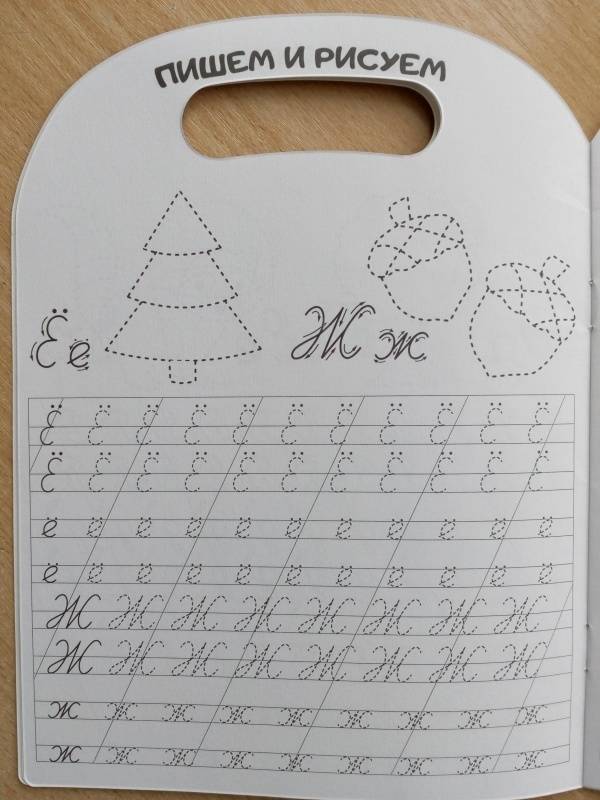 ПИШЕМ И РИСУЕМ
Ё ё Ж ж
Ё Ё Ё Ё Ё Ё Ё Ё Ё Ё Ё
Ё Ё Ё Ё Ё Ё Ё Ё Ё Ё Ё
ё ё ё ё ё ё ё ё ё ё ё
ё ё ё ё ё ё ё ё ё ё ё
Ж Ж Ж Ж Ж Ж Ж Ж
Ж Ж Ж Ж Ж Ж Ж Ж
ж ж ж ж ж ж ж ж ж
ж ж ж ж ж ж ж ж ж